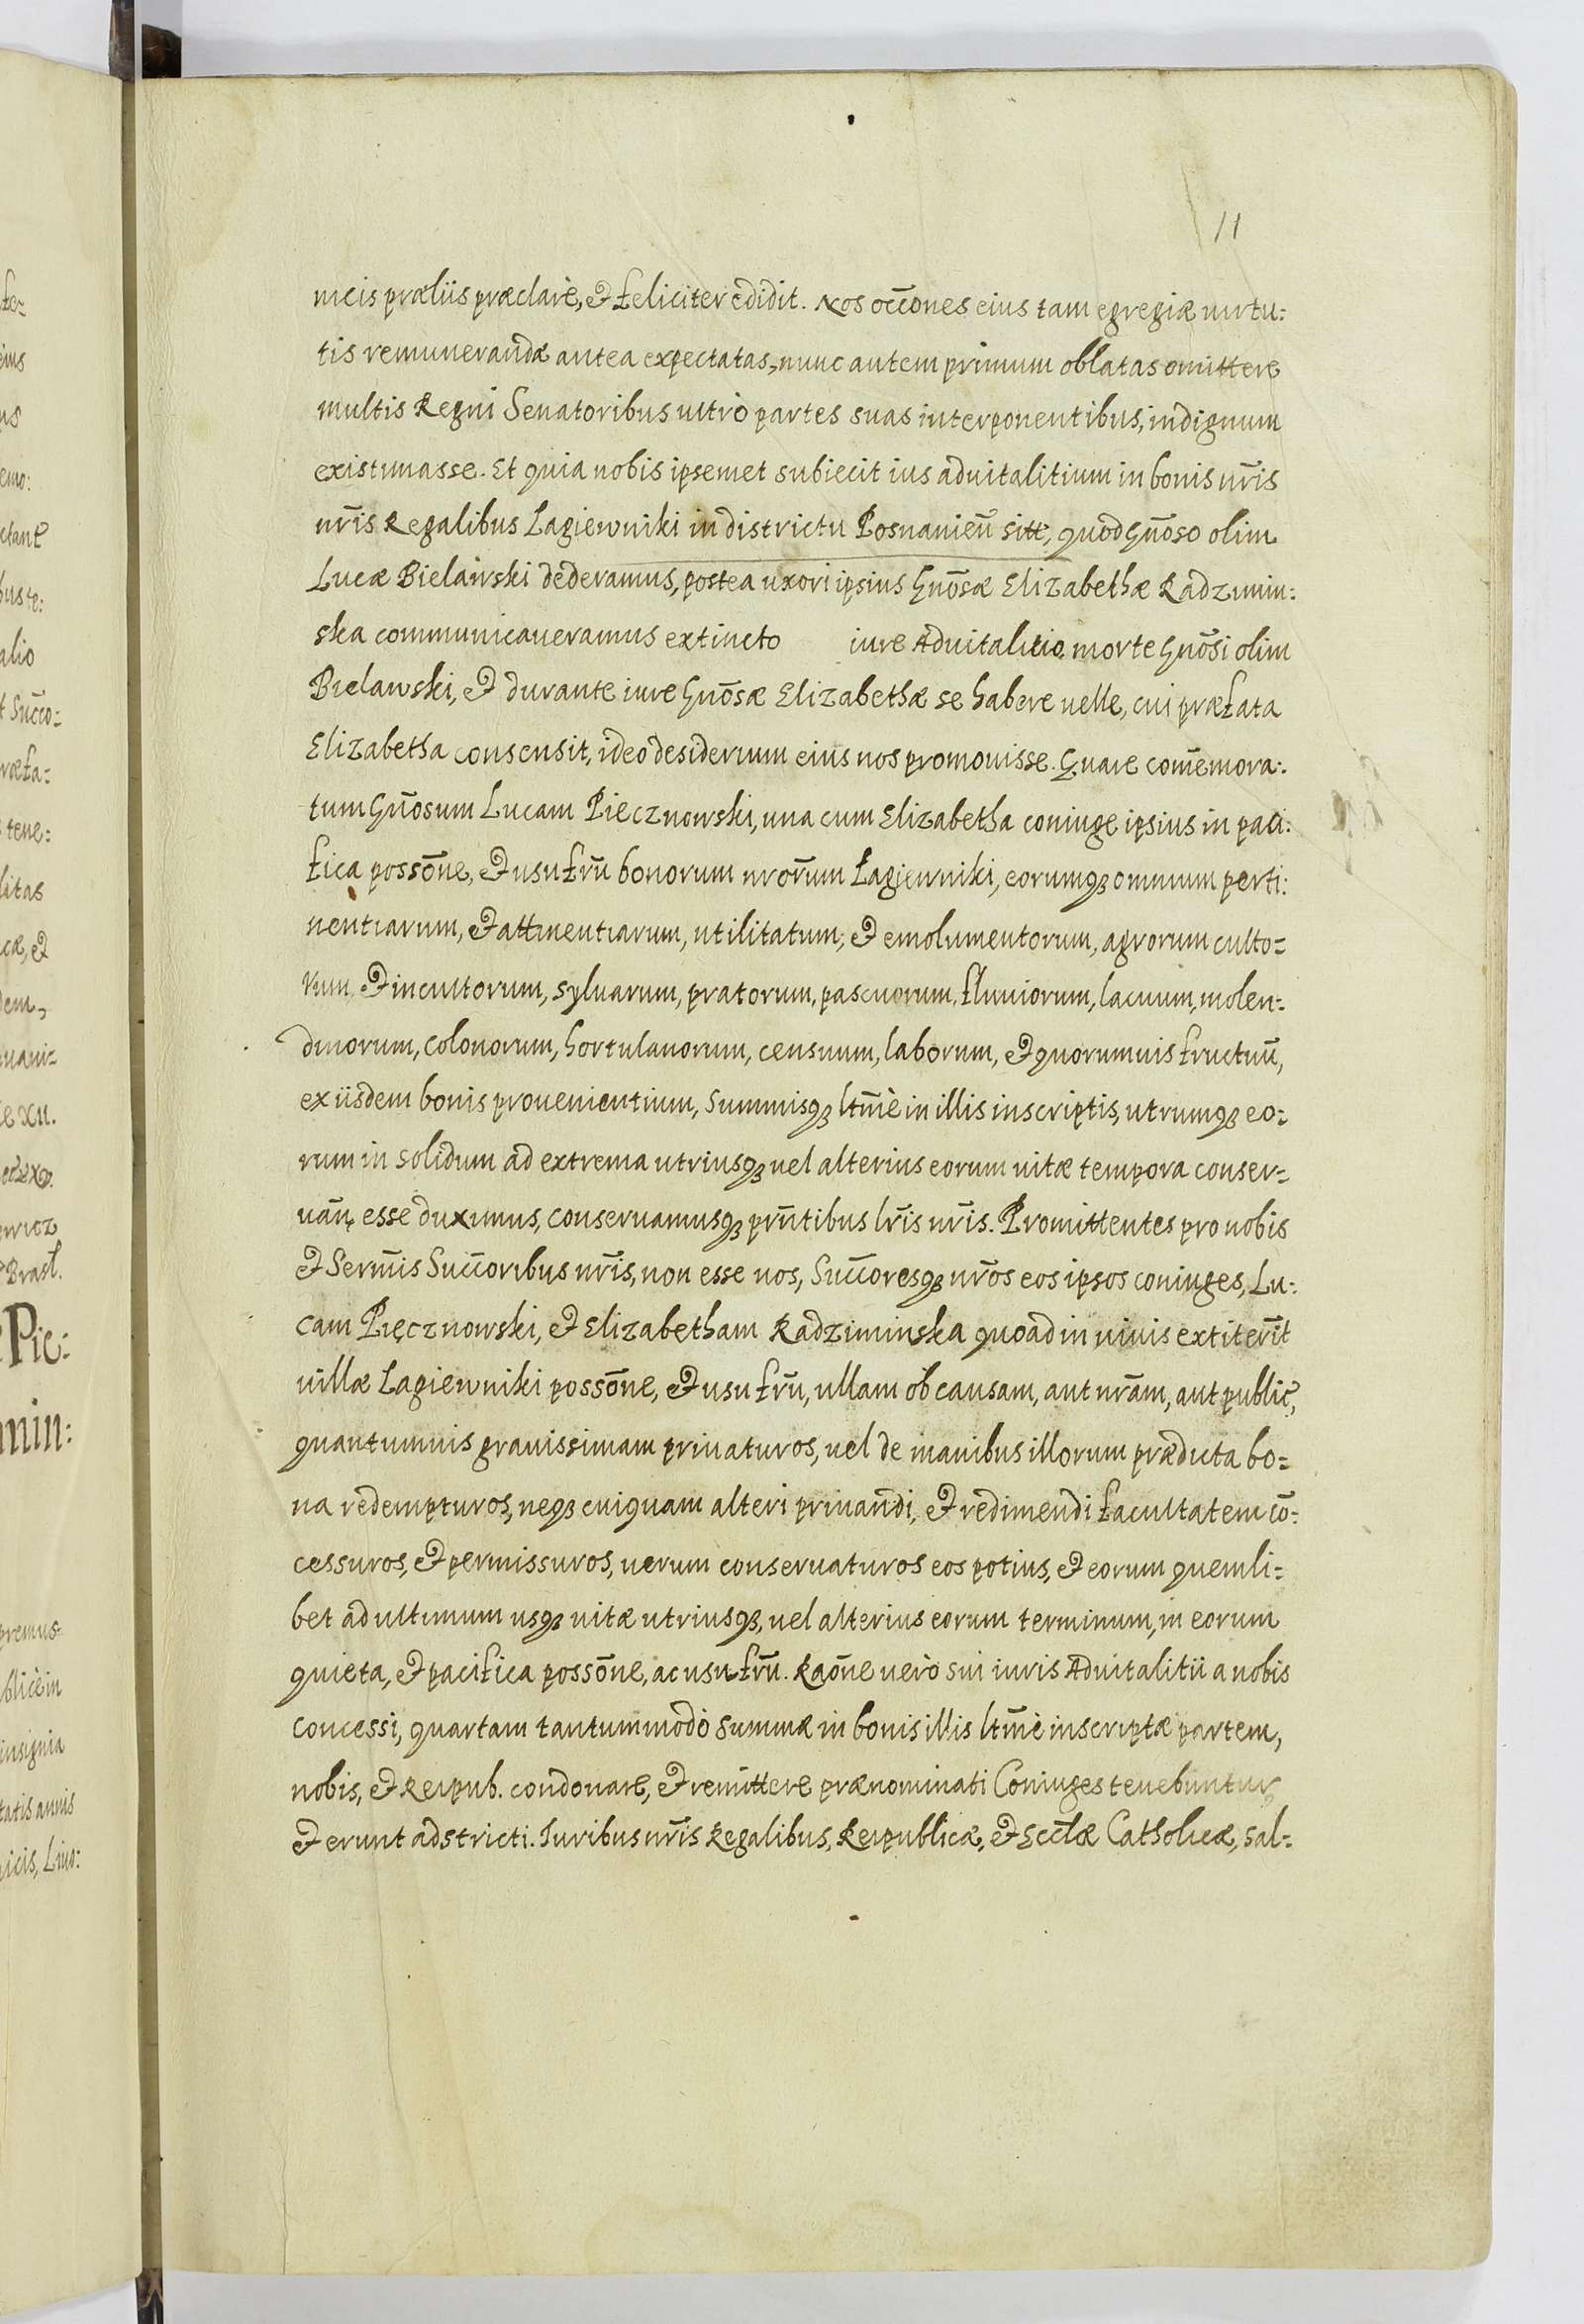 11
nicis præliis præclarè, et feliciter edidit. Nos occōnes eius tam egregiæ uirtu:
tis remunerandæ antea expectatas, nunc autem primum oblatas omittere
multis Regni Senatoribus ultrò partes suas interponentibus, indignum
existimasse. Et quia nobis ipsemet subiecit ius aduitalitium in bonis nr̄is
nr̄is Regalibus Łagiewniki in districtu Posnanień sitt, quod Gnōso olim
Lucæ Bielawski dederamus, postea uxori ipsius Gnōsæ Elizabethæ Radzimin:
ska communicaueramus extincto iure Aduitalitio morte Gnōsi olim
Bielawski, et durante iure Gnōsæ Elizabethæ se habere uelle, cui præfata
Elizabetha consensit, ideo desiderium eius nos promouisse. Quare com̄emora:
tum Gnōsum Lucam Piecznowski, una cum Elizabetha coniuge ipsius in paci:
fica possōne, et usufrū bonorum nrōrum Łagiewniki, eorumqꝫ omnium perti:
nentiarum, et attinentiarum, utilitatum, et emolumentorum, agrorum culto=
rum, et incultorum, syluarum, pratorum, pascuorum, fluuiorum, lacuum, molen=
dinorum, colonorum, hortulanorum, censuum, laborum, et quorumuis fructuū,
ex iisdem bonis prouenientium, Summisqꝫ ltm̄è in illis inscriptis, utrumqꝫ eo=
rum in solidum ad extrema utriusqꝫ uel alterius eorum uitæ tempora conser=
uāņ esse duximus, conseruamusqꝫ prn̄tibus lr̄is nr̄is. Promittentes pro nobis
et Serm̄is Succ̄oribus nr̄is, non esse nos, Succ̄oresqꝫ nr̄os eos ipsos coniuges, Lu:
cam Pięcznowski, et Elizabetham Radziminska quoad in uiuis extiterīt
uillæ Łagiewniki possōne, et usufrū, ullam ob causam, aut nr̄am, aut public̄,
quantumuis grauissimam priuaturos, uel de manibus illorum prædicta bo=
na redempturos, neqꝫ cuiquam alteri priuandi, et redimendi facultatem cō:
cessuros, et permissuros, uerum conseruaturos eos potius, et eorum quemli=
bet ad ultimum usqꝫ uitæ utriusqꝫ, uel alterius eorum terminum, in eorum
quieta, et pacifica possōne, ac usufrū. Raōne uerò sui iuris Aduitalitii a nobis
concessi, quartam tantummodò summæ in bonis illis ltm̄è inscriptæ partem,
nobis, et Reipub. condonare, et remittere prænominati Coniuges tenebuntur
et erunt adstricti. Iuribus nr̄is Regalibus, Reipublicæ, et Eccl̄æ Catholicæ, sal=